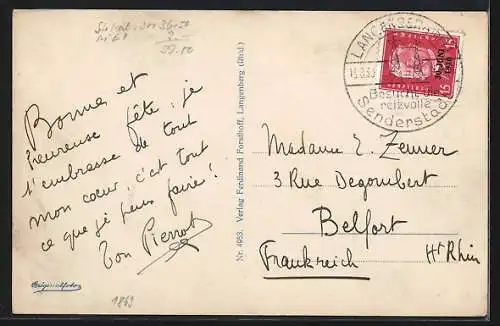 Bonne et
heureuse fête ; je
t'embrasse de tout
mon cœur, c'est tout
ce que je peux faire !
Ton Pierrot
Originalfoto
1869
Nr. 4953. Verlag Ferdinand Forsthoff, Langenberg (Rhld.)
LANGENBERG
Besucht die
reizvolle
Senderstadt
15
Madame E. Zenner
3 Rue Degombert
Belfort
Frankreich Ht Rhin